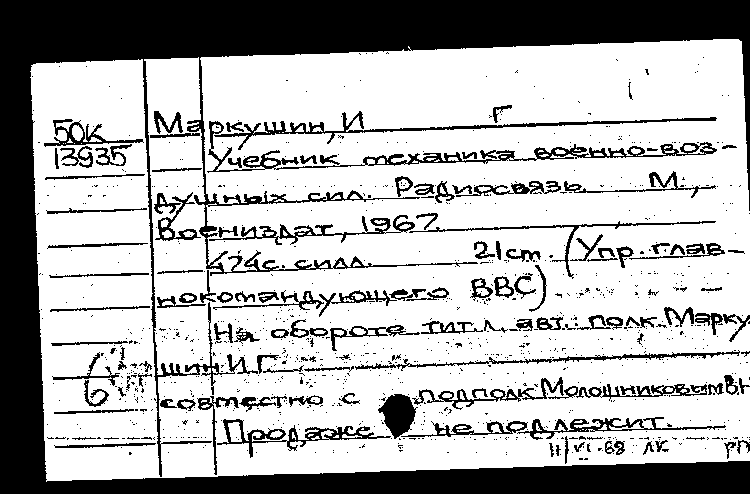 50К
13935
Маркушин, И Г
Учебник механика военно-воз-
душных сил. Радиосвязь. М.,
Воениздат, 1967.
474с. с илл. 21 ст. (Упр. глав-
нокомандующего ВВС)
На обороте тит. л. авт.: полк. Марку
шин И Г
совместно с подполк Молошниковым В Н
Продаже не подлежит.
11/VI-68 ЛК РП